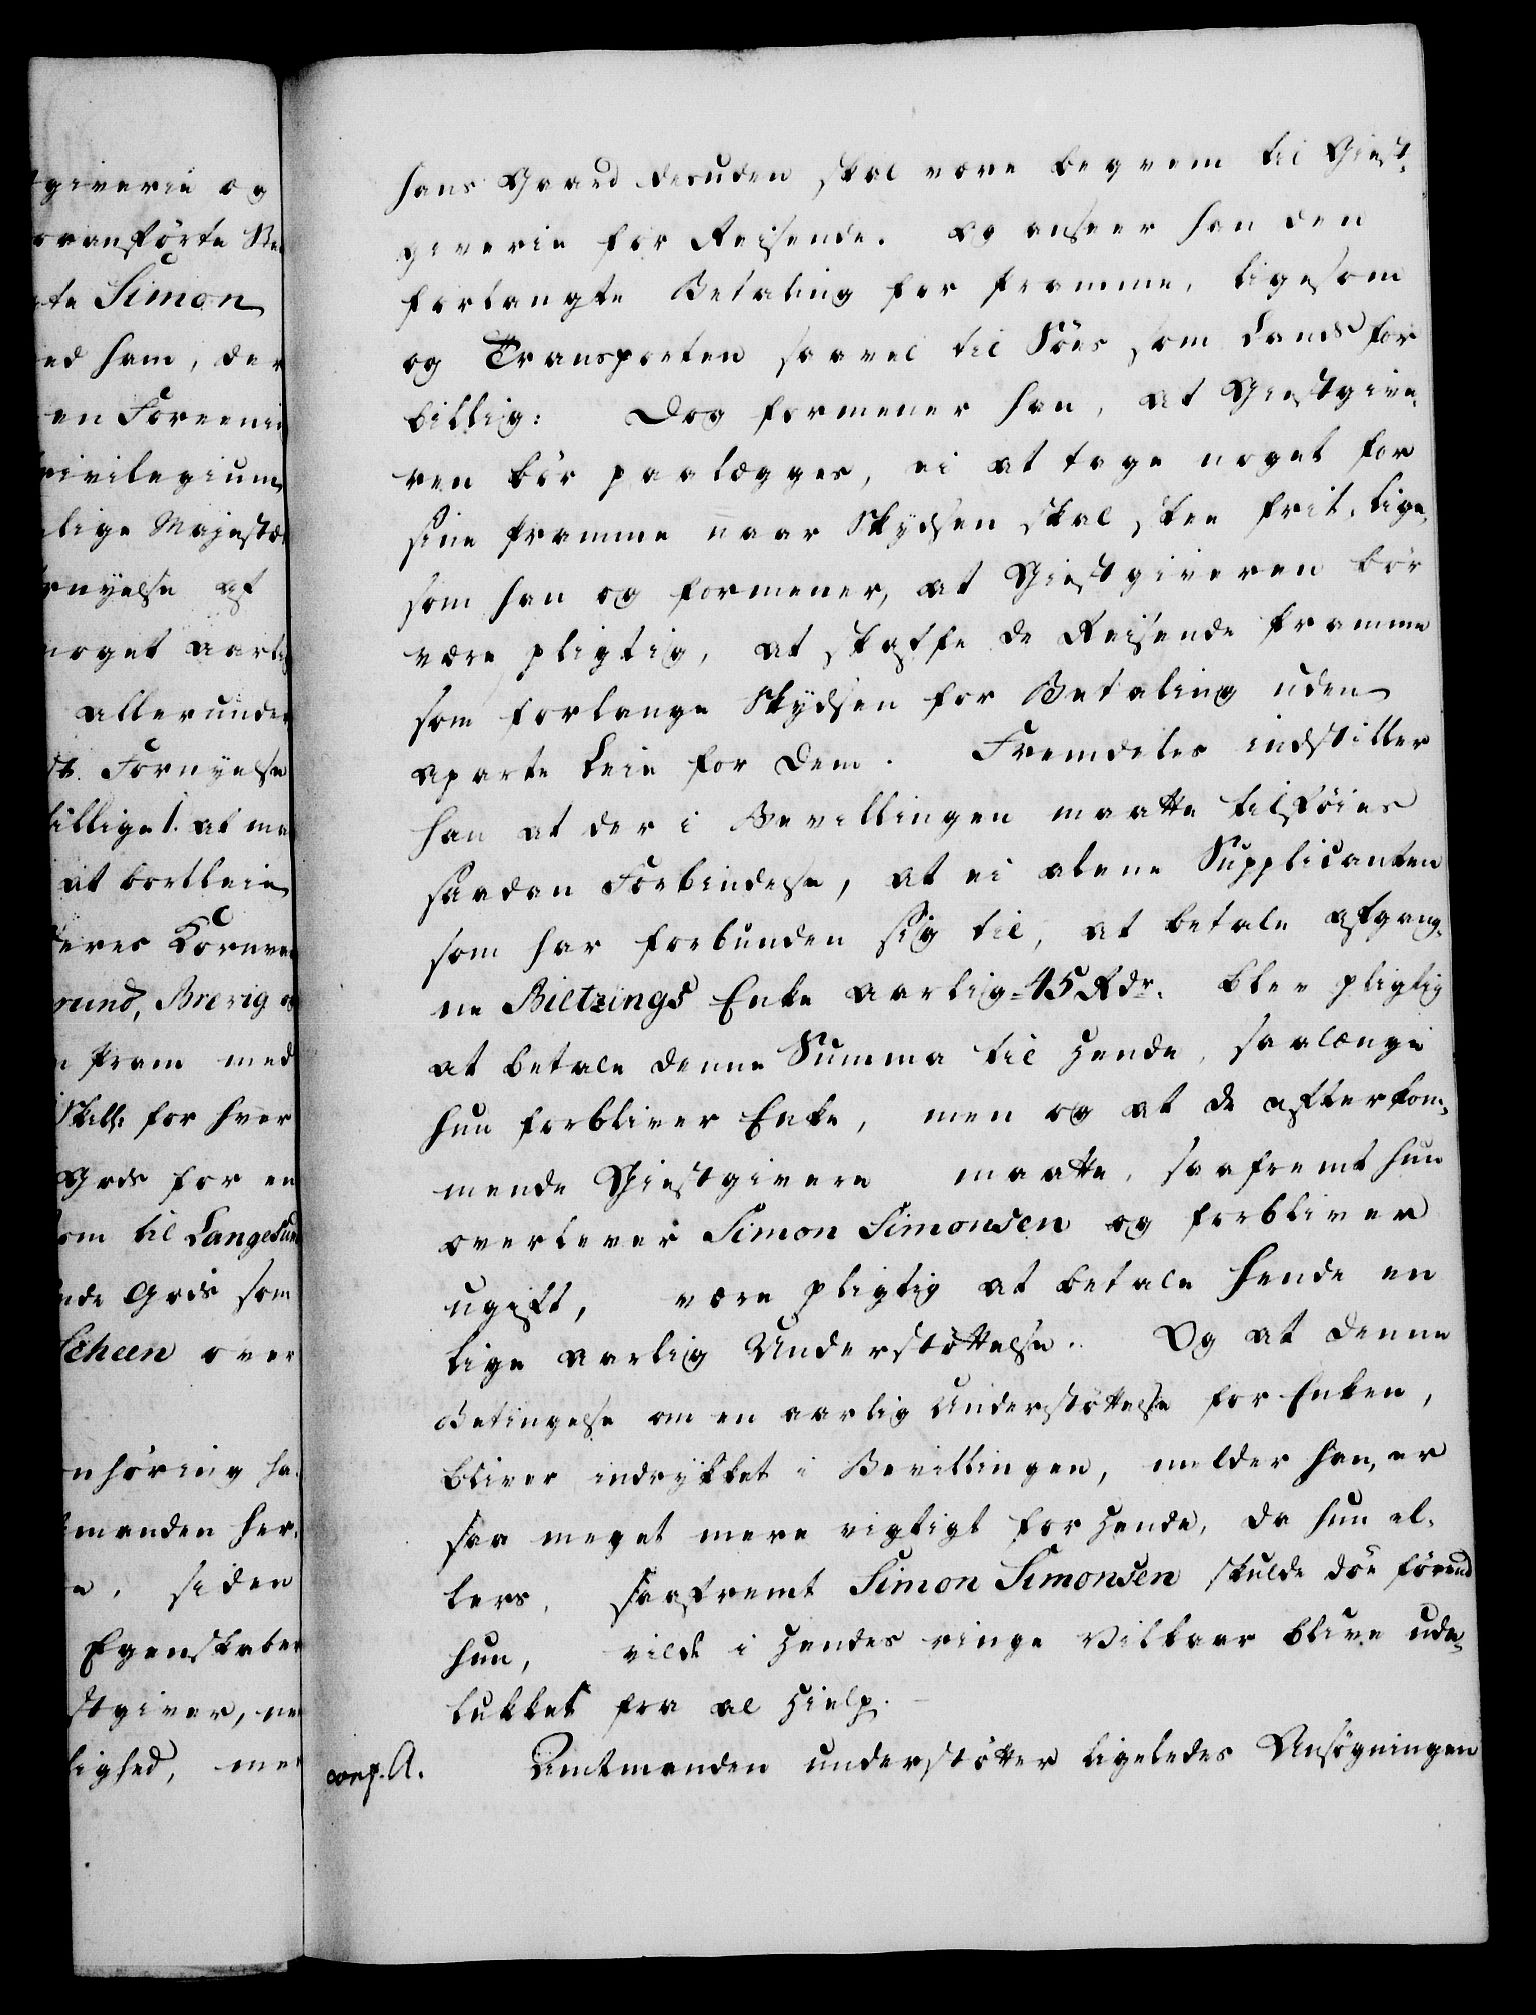 giverie og
oransförte Be
te Simon
ed ham, der
en Foreenin
rivilegium
lige Majestæ
rnyelse af
noget aarli
allerunder
st. Fornyelse
tillige 1. at ma
at bortleie
deres Kornva
rund, Brevig o
n pram med
Skill: for hver
Gods for en
om til Langesun
nde Gods som
Scheen over
nhöring ha
manden her,
e, siden
Egenskaber
stgiver, ne
lighed, mer
hans Gaard desuden skal være beqvem til Giest-
giverie for Reisende. Og anseer han den
forlangte Betaling for pramme, ligesom
og Transporten saavel til Söes som Lands for
billig: Dog formener han, at Giestgive-
ren bör paalægges, ei at tage noget for
sine pramme naar Skydsen skal skee frit, lige-
som han og formener, at Giestgiveren bör
være pligtig, at skaffe de Reisende pramme
som forlange Skydsen for Betaling uden
aparte Leie for dem. Fremdeles indstiller
han at der i Bevillingen maatte tilföies
saadan Forbindelse, at ei alene Supplicanten
som har forbunden sig til, at betale afgang-
ne Bieltzings Enke aarlig 45 Rdr. blev pligtig
at betale denne Summa til hende, saalænge
hun forbliver Enke, men og at de efterkom-
mende Giestgivere maatte, saafremt hun
overlever Simon Simonsen og forbliver
ugift, være pligtig at betale hende en
lige aarlig Understöttelse. Og at denne
Betingelse om en aarlig Understöttelse for Enken,
bliver indrykket i Bevillingen, melder han, er
saa meget mere vigtigt for hende, da hun el-
lers, saafremt Simon Simonsen skulde döe förend
hun, vilde i hendes ringe Vilkaar blive ude-
lukket fra al hielp.
conf. A. Amtmanden understötter ligeledes Ansögningen